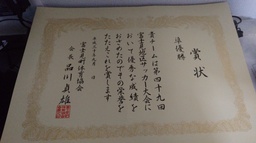 賞状
準優勝
貴チームは第四十九回
富士見地区サッカー大会に
おいて優秀な成績を
おさめたのでその栄誉を
たたえこれを賞します
富士見町体育協会
会長 品川